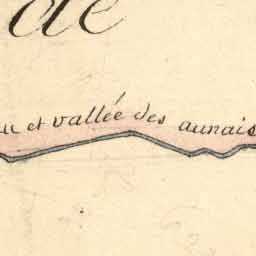 de
et vallée des aunais